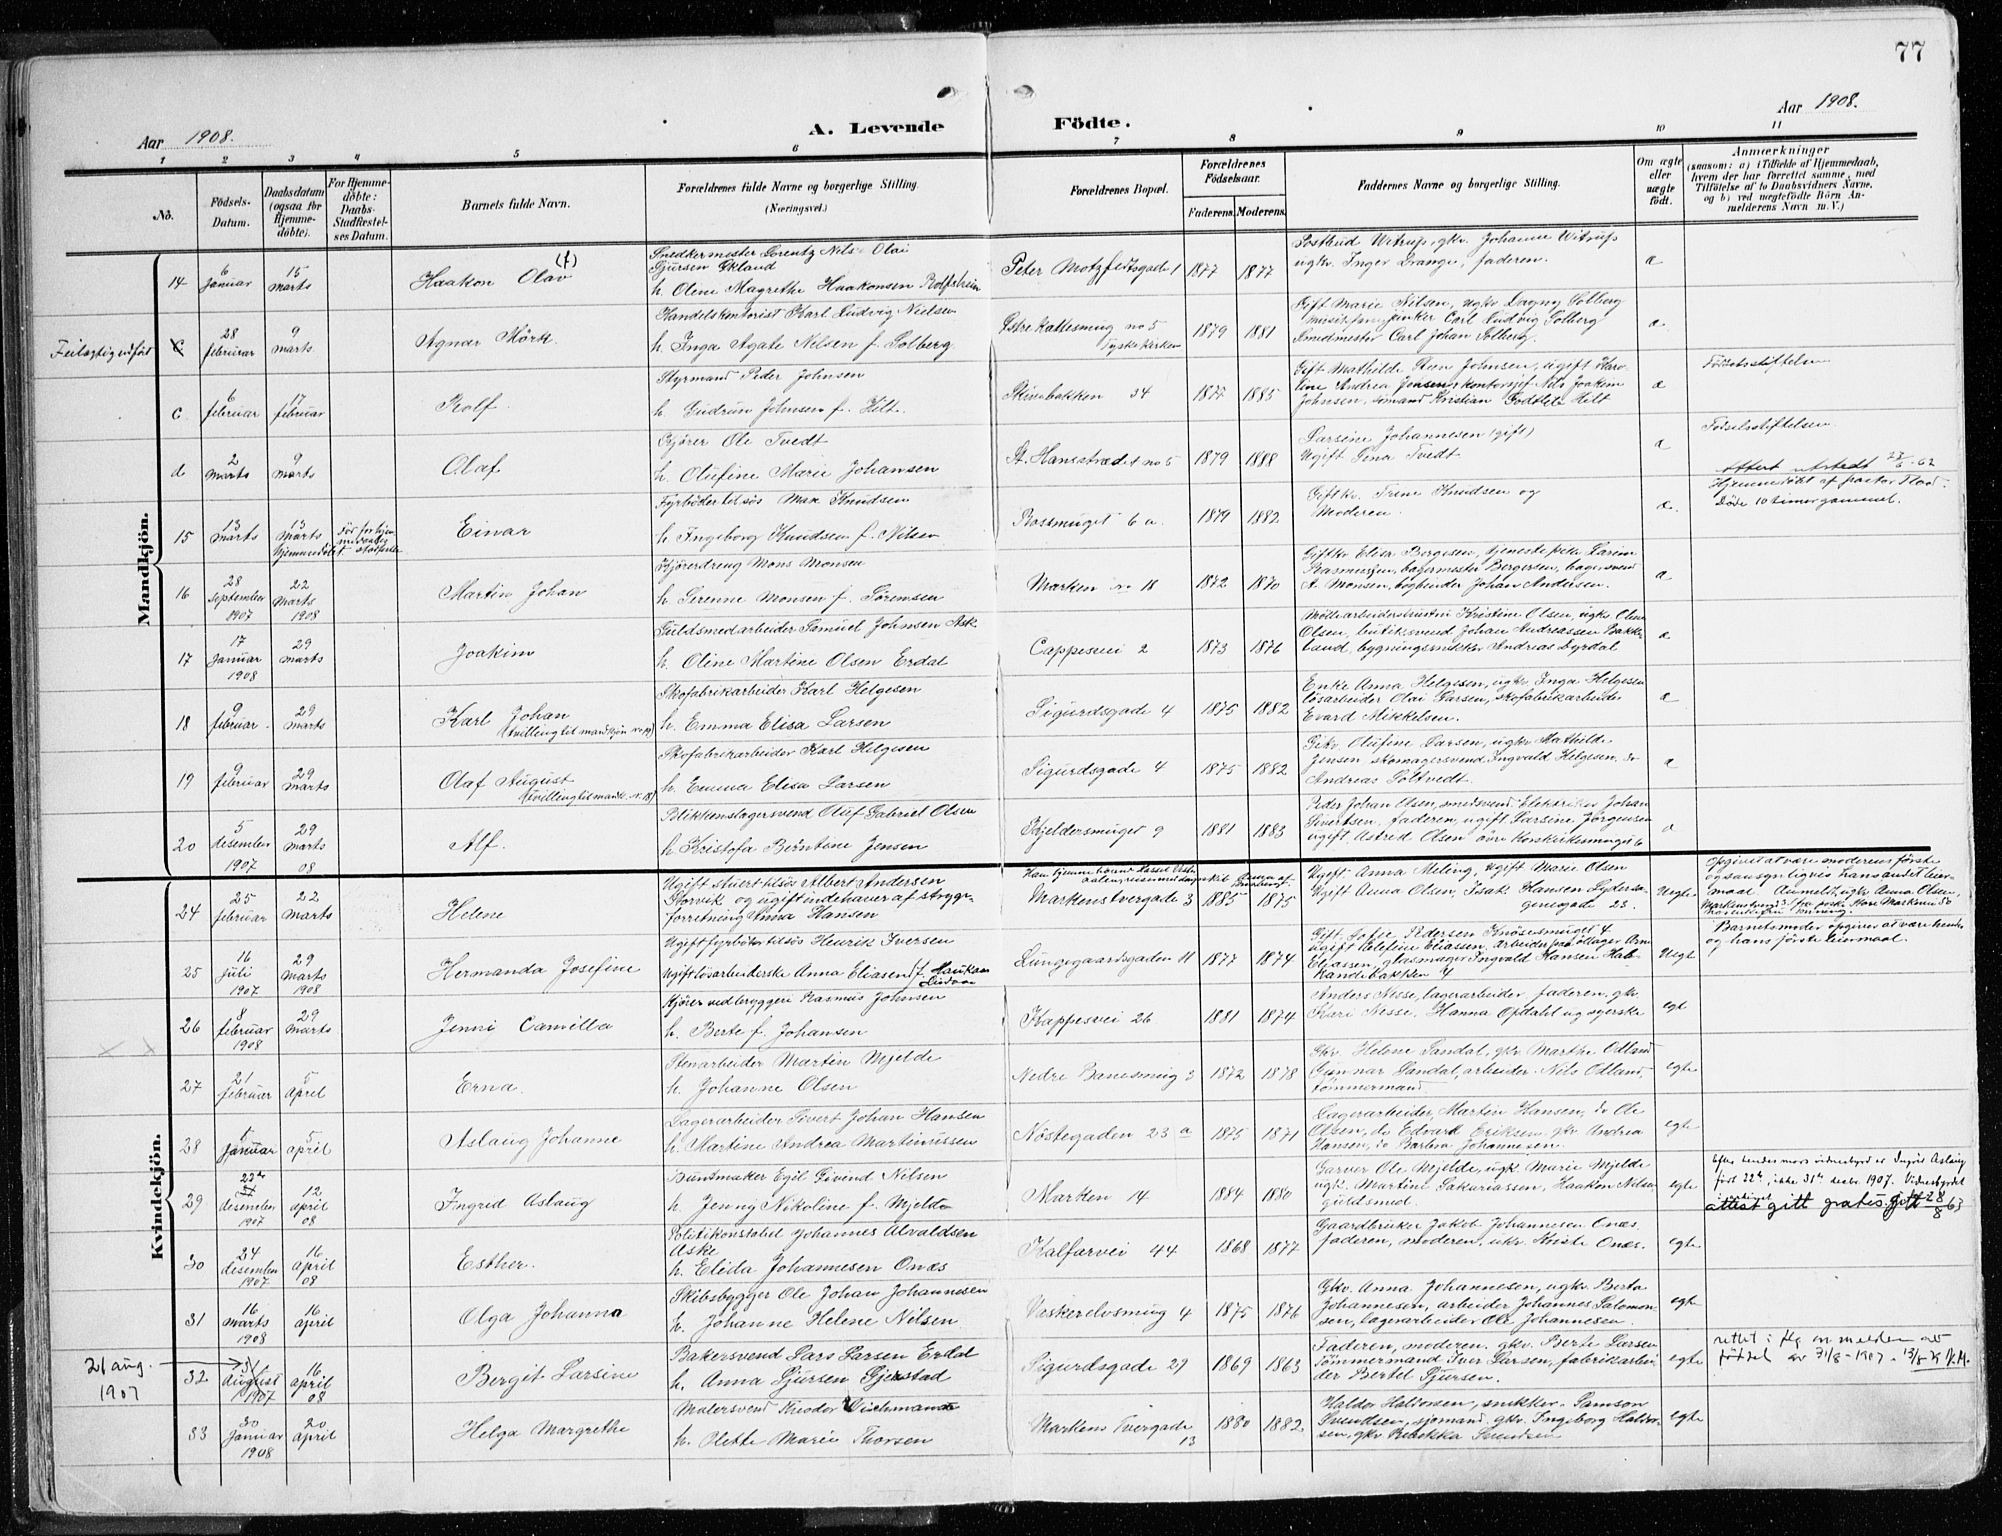 77
Aar 1908.
A. Levende Födte.
Aar 1908.
1 2 3 4 5 6 7 8 9 10 11
No.
Födsels-Datum.
Daabsdatum (ogsaa for Hjemmedöbte).
For Hjemmedöbte: Daabs-Stadfæstelses Datum.
Barnets fulde Navn.
Forældrenes fulde Navne og borgerlige Stilling.
(Næringsvei.)
Forældrenes Bopæl.
Forældrenes Födselsaar.
Faderens. Moderens.
Faddernes Navne og borgerlige Stilling.
Om ægte eller uægte födt.
Anmærkninger
(saasom: a) i Tilfælde af Hjemmedaab, hvem der har forrettet samme, med Tilföielse af to Daabsvidners Navne, og b) ved uægtefödte Börn Anmelderens Navn m. V.)
Mandkjön.
14 6 januar 15 marts Haakon Olav (f)
Snedkermester Lorentz Nils Olai
Sjursen Ekland
h. Oline Magrethe Haakonsen Rolfsheim
Peter Motzfeldtsgade 1 1877 1877
Postbud Witrup, gkv. Johanne Witrup
ugkv. Inger Drange, faderen. æ
Feilagtig indført c 28 februar 9 marts Agnar Mörk
Handelskontorist Karl Ludvig Nielsen
h. Inga Agate Nilsen f. Solberg.
no 5 Tyskekirken 1879 1881
Gift Marie Nilsen, ugkv Dagny Solberg
Carl Ludvig Solberg
Smedmester Carl Johan Solberg. æ
c 6 februar 17 februar Rolf.
Styrmand Peder Johnsen
h. Gudrun Johnsen f. Hilt.
Skivebakken 34 1877 1885
Gift Mathilde Johnsen, ugift Karoline Andrea Jensen, kontorsjef Nils Joakim
Johnsen, sømand Kristian Godtlieb Hilt æ
Fødselsstiftelsen
d 2 marts 9 marts Olaf
Kjører Ole Tvedt
h. Olufine Marie Johansen
St. Hansstrædet no 5 1879 1888
Larsine Johannesen (gift)
Ugift Gina Tvedt æ
Fødselsstiftelsen
Attest utstedt 27/6-62
15 13 marts 13 marts hjemmedøbt
Fyrbøder tilsøs Max Knudsen
Einar
h. Ingeborg Knudsen f. Nilsen
Rosmuget 6 a. 1879 1882
Gift kv. Trine Knudsen og
Moderen. æ.
Hjemmedøbt af pastor
Døde 10 timer gammel.
16 28 september 1907 22 marts 1908 Martin Johan
Kjørerdreng Mons Monsen
h. Serenne Monsen f. Sørensen
Marken no 18 1872 1870
Giftkv. Elisa Bergesen, tjenestepike Larine
Rasmussen, bagermester Bergersen, bagersvend
A. Monsen, bogbinder Johan Andersen. æ
17 17 januar 1908 29 marts Joakim
Guldsmedarbeider Samuel Johnsen Ask
h. Oline Martine Olsen Erdal
Cappesvei 2 1873 1876
Möllearbeiderhustru Kristine Olsen, ugkv Oline
Olsen, butiksvend Johan Andreassen Bakkelund, bygningssnikker Andreas Dyrdal æ
18 9 februar 29 marts Karl Johan
(tvilling til mandkjøn no 19)
Skofabrikarbeider Karl Helgesen
h. Emma Elisa Larsen
Sigurdsgade 4 1875 1882
Enke Anna Helgesen, ugkv. Inga Helgesen
løsarbeider Olai Larsen, skofabrikarbeider
Evard Mikkelsen. æ
19 9 februar 29 marts Olaf August
(tvilling til mandk. no 18)
Skofabrikarbeider Karl Helgesen
h. Emma Elisa Larsen
Sigurdsgade 4 1875 1882
Gkv. Olufine Larsen, ugkv Mathilde
Jensen, skomagersvend Ingvald Helgesen, do
Andreas Soltvedt. æ
20 5 desember 1907 29 marts 08 Alf.
Blikkenslagersvend Oluf Gabriel Olsen
h. Kristofa Berntine Jensen
Kjeldersmuget 9 1881 1883
Peder Johan Olsen, smedsvend, Elektriker Johan
Sivertsen, faderen, ugift Larsine Jørgensen
ugift Astrid Olsen övre Korskirkesmuget 6
Kvindekjön.
24 25 februar 22 marts Helene
Ugift stuert tilsøs Albert Andersen
Storvik og ugift indehaver af strygeforretning Anna Hansen
Markenstvergade 3 1885 1875
Ugift Anna Meling, ugift Marie Olsen
Ugift Anna Olsen, Isak Hansen Lyder Sagensgade 23. Uegte
Opgivet at være moderens første
og sandsynligvis hans andet leiermaal. Anmeldt, ugkv Anna Olsen,
25 16 juli 1907 29 marts 1908 Hermanda Josefine
Ugift fyrbøter tilsøs Henrik Iversen
Ugift løsarbeiderske Anna Eliasen
Lungegaardsgaden 11 1877 1874
Gift Sofie Pedersen Knösesmuget 4
ugift Alefine Eliassen, arbeider
Eliassen, glasmager Ingvald Hansen Halkandibakken 4 Uegt
Barnets moder opgiver at være hendes
og hans første leiermaal.
26 8 februar 1908 29 marts Jenni Camilla
Kjører ved bryggeri Rasmus Johnsen
h. Berte f. Johansen
Kappesvei 26 1881 1874
Anders Nesse, lagerarbeider faderen, gkv
Kari Nesse, Hanna Opdahl ug syerske egt
27 21 februar 5 april Erna.
Stenarbeider Martin Mjelde
h. Johanne Olsen
Nedre Banesmug 3 1872 1878
Gkv. Helene Sandal, gkv Marthe Odland
Gunnar Sandal, arbeider. Nils Odland,
tømmermand egte
28 1 januar 5 april Aslaug Johanne
Lagerarbeider Sivert Johan Hansen
h. Martine Andrea Martinussen
Nöstegaden 23 a 1875 1871
Lagerarbeider, Martin Hansen, do Ole
Olsen, do Edvard Eriksen, gkv Andrea
Hansen, do Barbra Johannesen. egte
29 22de 31 desember 1907 12 april 08 Ingrid Aslaug
Buntmaker Egil Eivind Nilsen
h. Jenny Nikoline f. Mjelde
Marken 14 1884 1880
Garver Ole Mjelde, ugk. Marie Mjelde
ugk. Martine Sakariassen, Haakon Nilsen
guldsmed. egte
Efter hendes mors vidnesbyrd er Ingrid Aslaug
født 22de, ikke 31te desbr. 1907. Vidnesbyrdet
attest gitt gratis 28/8 63
30 24 desember 1907 16 april 08 Esther.
Politikonstabel Johannes Alvaldsen
Aske
h. Elida Johannesen Onæs
Kalfarvei 44 1868 1877
Gaardbruker Jakob Johannesen Onæs
faderen, moderen, ukv Kriste Onæs. egte
31 16 marts 1908 16 april Olga Johanna
Skibsbygger Ole Johan Johannesen
h. Johanne Helene Nilsen
Vaskerelvsmug 4 1875 1876
Gkv. Anna Johannesen, ugkv. Berta
Johannesen, arbeider Johannes Salomonsen, lagerarbeider Ole Johannesen. egte
21 aug. 1907
32 31 august 1907 16 april 08 Bergit Larsine
Bakersvend Lars Larsen Erdal
h. Anna Sjursen Gjerstad
Sigurdsgade 29 1869 1863
Faderen, moderen, gkv. Berte Larsen
Tømmermand Iver Larsen, fabrikarbeider Bertel Sjursen. egte
rettet i flg. en melden att
føddsel av 31/8-1907
33 30 januar 1908 20 april Helga Margrethe
Malersvend Theodor Wischmann
h. Olette Marie Thorsen
Markens Tvergade 13 1880 1882
Haldor Haldorsen, snikker. Samson
Svendsen, sjömand, gkv. Ingeborg Haldorsen, gkv Rebekka Svendsen egte